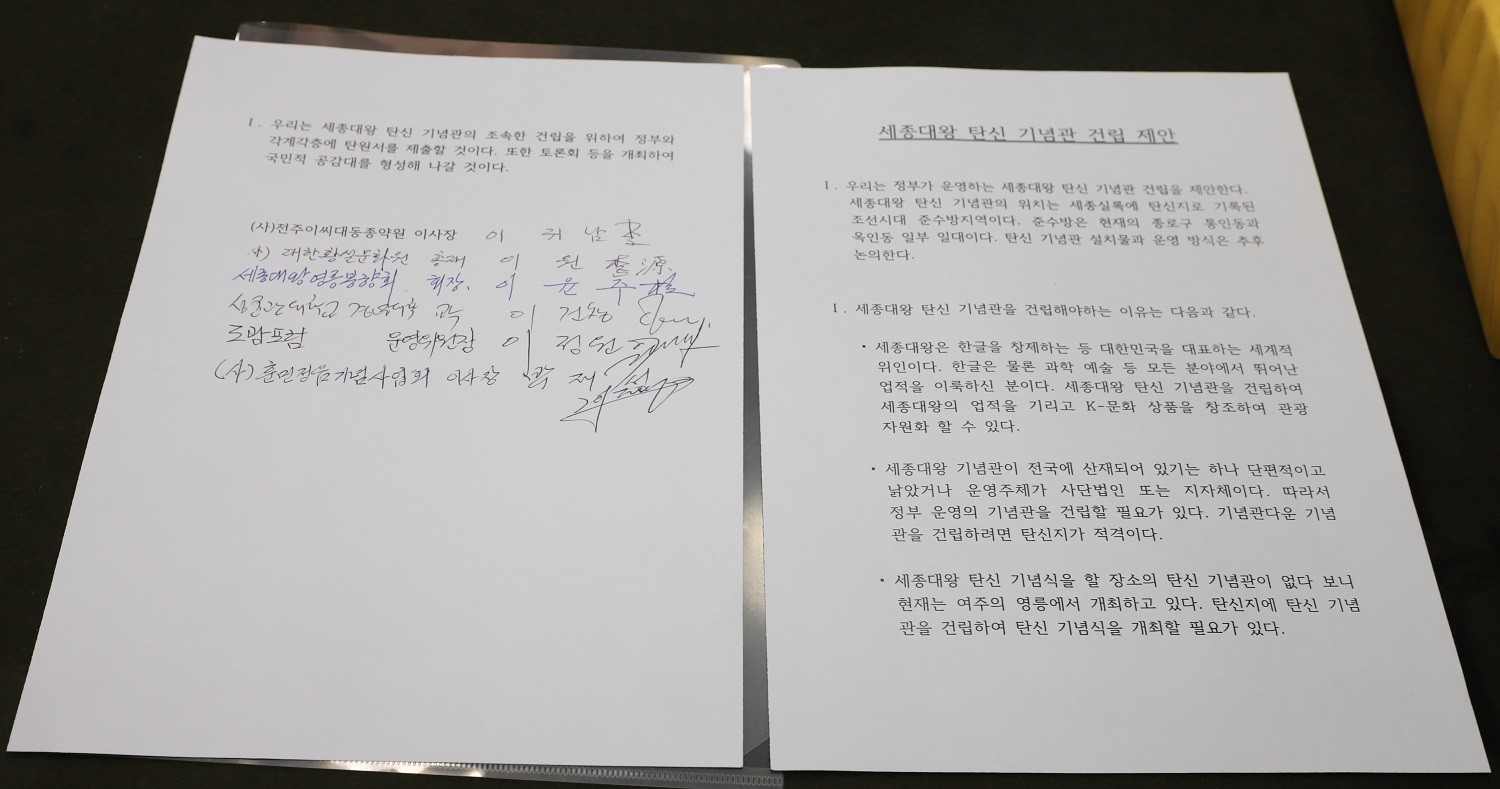 I. 우리는 세종대왕 탄신 기념관의 조속한 건립을 위하여 정부와
각계각층에 탄원서를 제출할 것이다. 또한 토론회 등을 개최하여
국민적 공감대를 형성해 나갈 것이다.
(사)전주이씨대동종약원 이사장 이 귀 남
사) 대한황실문화원 총재 이 원 李源
세종대왕영릉봉향회 회장. 이 윤 주
성균관대학교 교수 이
도담포럼 운영위원장 이 정 원
(사) 훈민정음기념사업회 이사장 박 재
세종대왕 탄신 기념관 건립 제안
I. 우리는 정부가 운영하는 세종대왕 탄신 기념관 건립을 제안한다.
세종대왕 탄신 기념관의 위치는 세종실록에 탄신지로 기록된
조선시대 준수방지역이다. 준수방은 현재의 종로구 통인동과
옥인동 일부 일대이다. 탄신 기념관 설치물과 운영 방식은 추후
논의한다.
I. 세종대왕 탄신 기념관을 건립해야하는 이유는 다음과 같다.
• 세종대왕은 한글을 창제하는 등 대한민국을 대표하는 세계적
위인이다. 한글은 물론 과학 예술 등 모든 분야에서 뛰어난
업적을 이룩하신 분이다. 세종대왕 탄신 기념관을 건립하여
세종대왕의 업적을 기리고 K-문화 상품을 창조하여 관광
자원화 할 수 있다.
• 세종대왕 기념관이 전국에 산재되어 있기는 하나 단편적이고
낡았거나 운영주체가 사단법인 또는 지자체이다. 따라서
정부 운영의 기념관을 건립할 필요가 있다. 기념관다운 기념
관을 건립하려면 탄신지가 적격이다.
• 세종대왕 탄신 기념식을 할 장소의 탄신 기념관이 없다 보니
현재는 여주의 영릉에서 개최하고 있다. 탄신지에 탄신 기념
관을 건립하여 탄신 기념식을 개최할 필요가 있다.